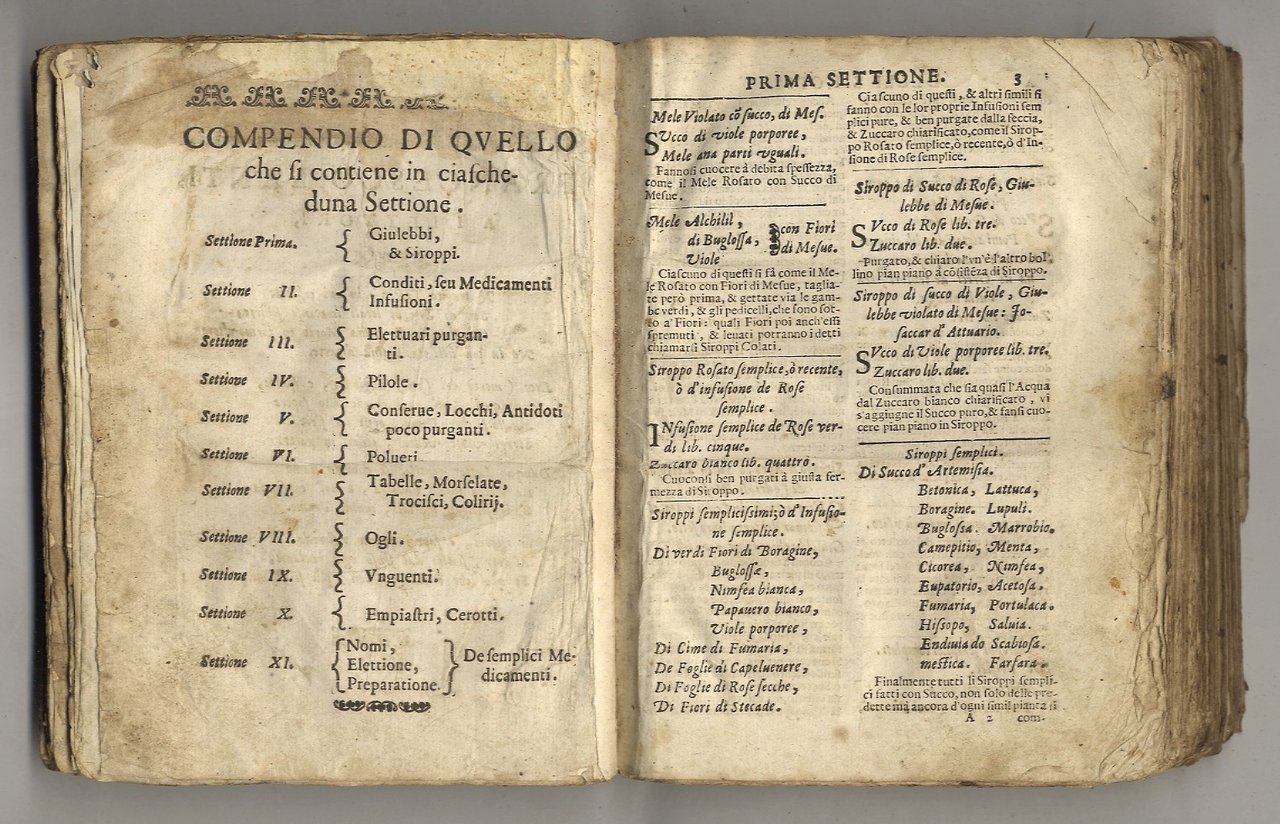 COMPENDIO DI QVELLO
che ſi contiene in ciaſche-
duna Settione.
Settione Prima. { Giulebbi,
& Siroppi.
Settione II. { Conditi, ſeu Medicamenti
Infuſioni.
Settione III. { Elettuari purgan-
ti.
Settione IV. { Pilole.
Settione V. { Conſerue, Locchi, Antidoti
poco purganti.
Settione VI. { Polueri
Settione VII. { Tabelle, Morſelate,
Trociſci, Colirij.
Settione VIII. { Ogli.
Settione IX. { Vnguenti.
Settione X. { Empiaſtri, Cerotti.
Settione XI. { Nomi,
Elettione,
Preparatione. } De ſemplici Me-
dicamenti.
PRIMA SETTIONE. 3
Mele Violato cõ ſucco, di Meſ.
SVcco di viole porporee,
Mele ana parti vguali.
Fannoſi cuocere à debita ſpeſſezza,
come il Mele Roſato con Succo di
Meſue.
Mele Alchilil,
di Bugloſſa, } con Fiori
Viole } di Meſue.
Ciaſcuno di queſti ſi fà come il Me-
le Roſato con Fiori di Meſue, taglia-
te però prima, & gettate via le gam-
be verdi, & gli pedicelli, che ſono ſot-
to a' Fiori: quali Fiori poi anch'eſſi
ſpremuti, & leuati potranno i detti
chiamarſi Siroppi Colati.
Siroppo Roſato ſemplice, ò recente,
ò d'infuſione de Roſe
ſemplice.
INfuſione ſemplice de Roſe ver-
di lib. cinque.
Zuccaro bianco lib. quattro.
Cuoconſi ben purgati à giuſta fer-
mezza di Siroppo.
Siroppi ſempliciſſimi; ò d'Infuſio-
ne ſemplice.
Di verdi Fiori di Boragine,
Bugloſſa,
Nimfea bianca,
Papauero bianco,
Viole porporee,
Di Cime di Fumaria,
De Foglie di Capeluenere,
Di Foglie di Roſe ſecche,
Di Fiori di Stecade.
Ciaſcuno di queſti, & altri ſimili ſi
fanno con le lor proprie Infuſioni ſem
plici pure, & ben purgate dalla feccia,
& Zuccaro chiarificato, come il Sirop-
po Roſato ſemplice, ò recente, ò d'In-
fuſione di Roſe ſemplice.
Siroppo di Succo di Roſe, Giu-
lebbe di Meſue.
SVcco di Roſe lib. tre.
Zuccaro lib. due.
Purgato, & chiaro l'vn'è l'altro bol
lino pian piano à cõſiſtẽza di Siroppo.
Siroppo di ſucco di Viole, Giu-
lebbe violato di Meſue: Jo-
ſaccar d'Attuario.
SVcco di Viole porporee lib. tre.
Zuccaro lib. due.
Conſummata che ſia quaſi l'Acqua
dal Zuccaro bianco chiarificato, vi
s'aggiugne il Succo puro, & fanſi cuo-
cere pian piano in Siroppo.
Siroppi ſemplici.
Di Succo d'Artemiſia.
Betonica, Lattuca,
Boragine. Lupuli.
Bugloſſa. Marrobio.
Camepitio, Menta,
Cicorea, Nimfea,
Eupatorio, Acetoſa.
Fumaria, Portulaca.
Hiſſopo, Saluia.
Endiuia do Scabioſa.
meſtica. Farfara.
Finalmente tutti li Siroppi ſempli-
ci fatti con Succo, non ſolo delle pre-
dette mà ancora d'ogni ſimil pianta ſi
A 2 com-